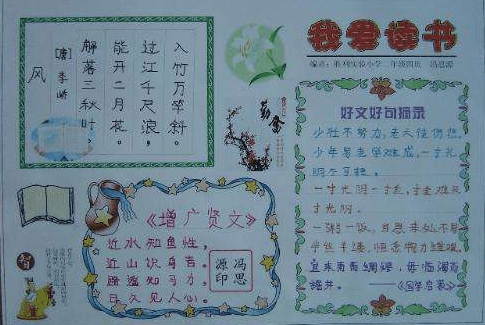 我爱读书
编者：胜利实验小学 二年级四班 冯思源
风
[唐]李峤
解落三秋叶。
能开二月花。
过江千尺浪，
入竹万竿斜。
勤奋
好文好句摘录
少壮不努力，老大徒伤悲。
少年易老学难成，一寸光
阴不可轻。
一寸光阴一寸金，寸金难买
寸光阴。
一粥一饭，当思来处不易
半丝半缕，恒念物力维艰。
宜未雨而绸缪，毋临渴而
掘井。
——《国学启蒙》
《增广贤文》
近水知鱼性，
近山识鸟音。
路遥知马力，
日久见人心。
冯思
源印
智